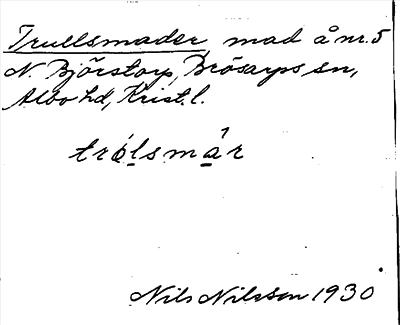 Trullsmader, mad å nr. 5
N. Björstorp, Brösarps sn,
Albo hd, Krist. l.
trólsmår
Nils Nilsson 1930